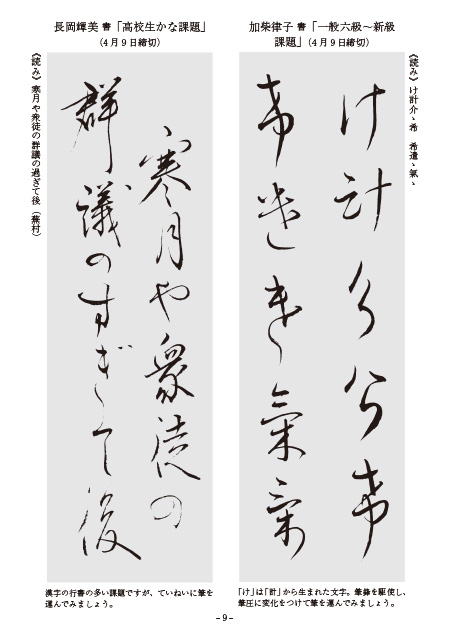 加柴律子 書「一般六級～新級
課題」（4月9日締切）
《読み》け計介ヽ希　希遣ヽ氣ヽ
「け」は「計」から生まれた文字。筆鋒を駆使し、
筆圧に変化をつけて筆を運んでみましょう。
長岡輝美 書「高校生かな課題」
（4月9日締切）
寒月や衆徒の
群議のすぎて後
《読み》寒月や衆徒の群議の過ぎて後（蕪村）
漢字の行書の多い課題ですが、ていねいに筆を
運んでみましょう。
- 9 -